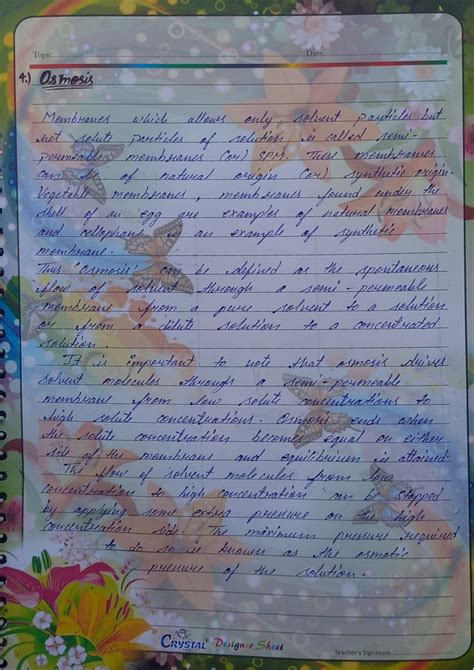 Topic
Date
4.) Osmosis
Membranes which allows only solvent particles but
not solut particles of solution is called semi-
permeable membranes (or) SPM. These membranes
can be of natural origin (or) synthetic origin.
Vegetable membranes, membranes found under the
shell of an egg are examples of natural membranes
and cellophane is an example of synthetic
membrane.
Thus 'Osmosis' can be defined as the spontaneous
flow of solvent through a semi-permeable
membrane from a pure solvent to a solution
or from a dilute solution to a concentrated
solution.
It is important to note that osmosis drives
solvent molecules through a semi-permeable
membrane from low solute concentrations to
high solute concentrations. Osmosis ends when
the solute concentration becomes equal on either
side of the membrane and equilibrium is attained.
The flow of solvent molecules from low
concentration to high concentration can be stopped
by applying some extra pressure on the high
concentration side. The maximum pressure required
to do so is known as the osmotic
pressure of the solution.
CRYSTAL Designer Sheet
Teacher's Signature